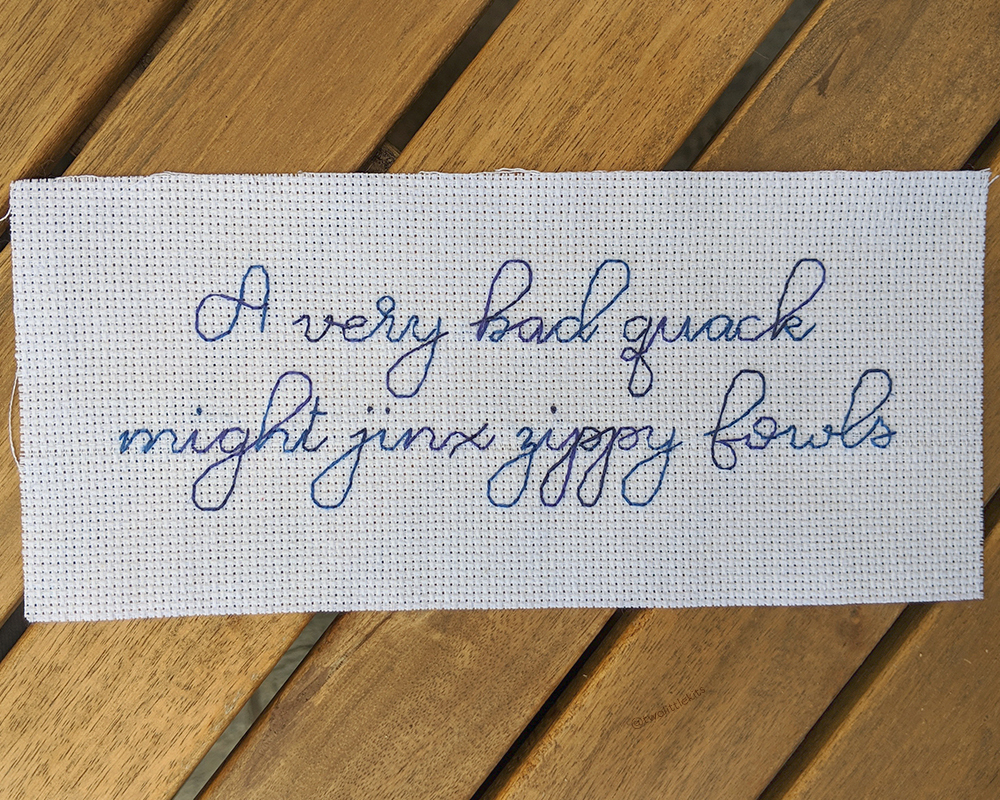 A very bad quack
might jinx zippy fowls
@twolittlekits